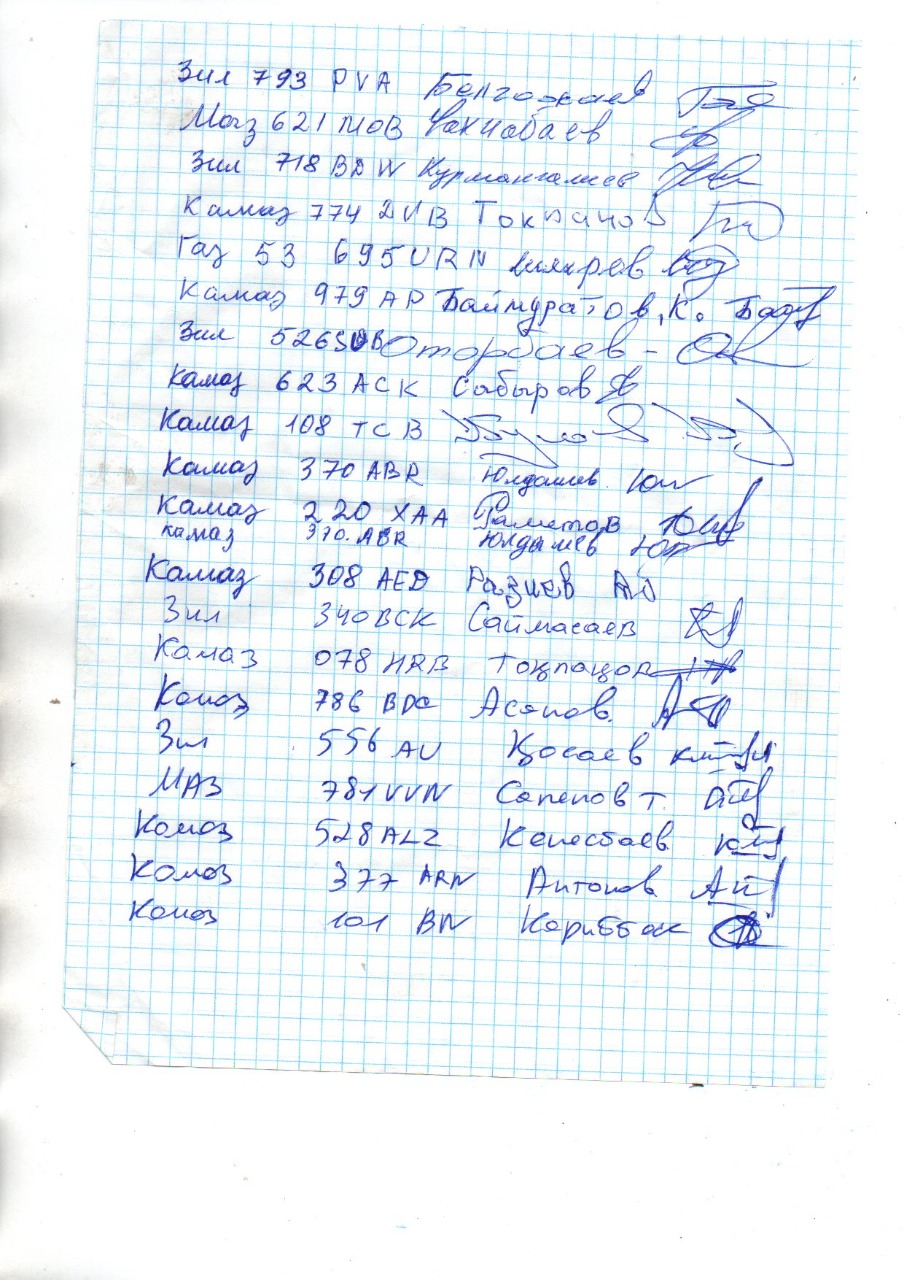 Зил 793 PVA Белгожаев
Маз 621 MOB Чокнобаев
Зил 718 BDW Курмангалиев
Камаз 774 DVB Токпачов
Газ 53 695 URN
Камаз 979 AP Баймуратов, К.
Зил 526 Оторбаев -
Камаз 623 АСК Сабыров
Камаз 108 ТСВ
Камаз 370 ABR Юлдашев.
Камаз 220 XAA Раметов
камаз 370. ABR Юлдашев
Камаз 308 AED Разиев
Зил 340 ВСК Саймасаев
Камаз 078 HRB Тоқпацов
Камаз 786 BDC Асапов.
Зил 556 AU Қосаев
МАЗ 781 VVN Сапепов т.
Камаз 528 ALZ Кенесбаев
Камаз 377 ARN Антонов
Камаз 101 BN Кориббак